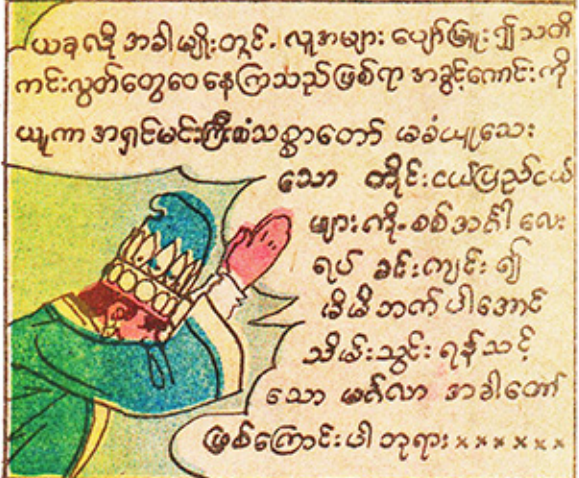 ယခုလို အခါမျိုးတွင်၊ လူအများ ပျော်မြူး၍သတိ
ကင်းလွတ်တွေဝေနေကြသည်ဖြစ်ရာ အခွင့်ကောင်းကို
ယူကာ အရှင်မင်းကြီးစံသစ္စာတော် မခံယူသေး
သော တိုင်းငယ်ပြည်ငယ်
များကို၊ စစ်အင်္ဂါ လေး
ရပ် ခင်းကျင်း၍
မိမိဘက်ပါအောင်
သိမ်းသွင်း ရန်သင့်
သော မင်္ဂလာ အခါတော်
ဖြစ်ကြောင်းပါဘုရား××××××